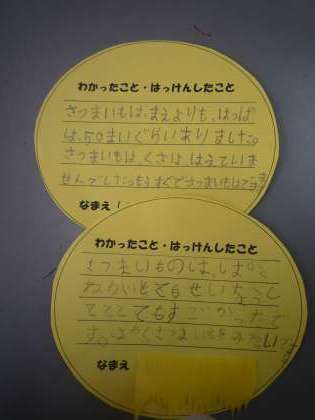 わかったこと・はっけんしたこと
さつまいもは、まえよりも、はっぱ
は、50まいぐらいありました。
さつまいもは、くさは、はえていま
せんでした。もうすぐでさつまいもはできます
なまえ
わかったこと・はっけんしたこと
さつまいものは、
せいちょうし
てて とてもすごかったで
す。はやくさつまいもをみたいです。
なまえ